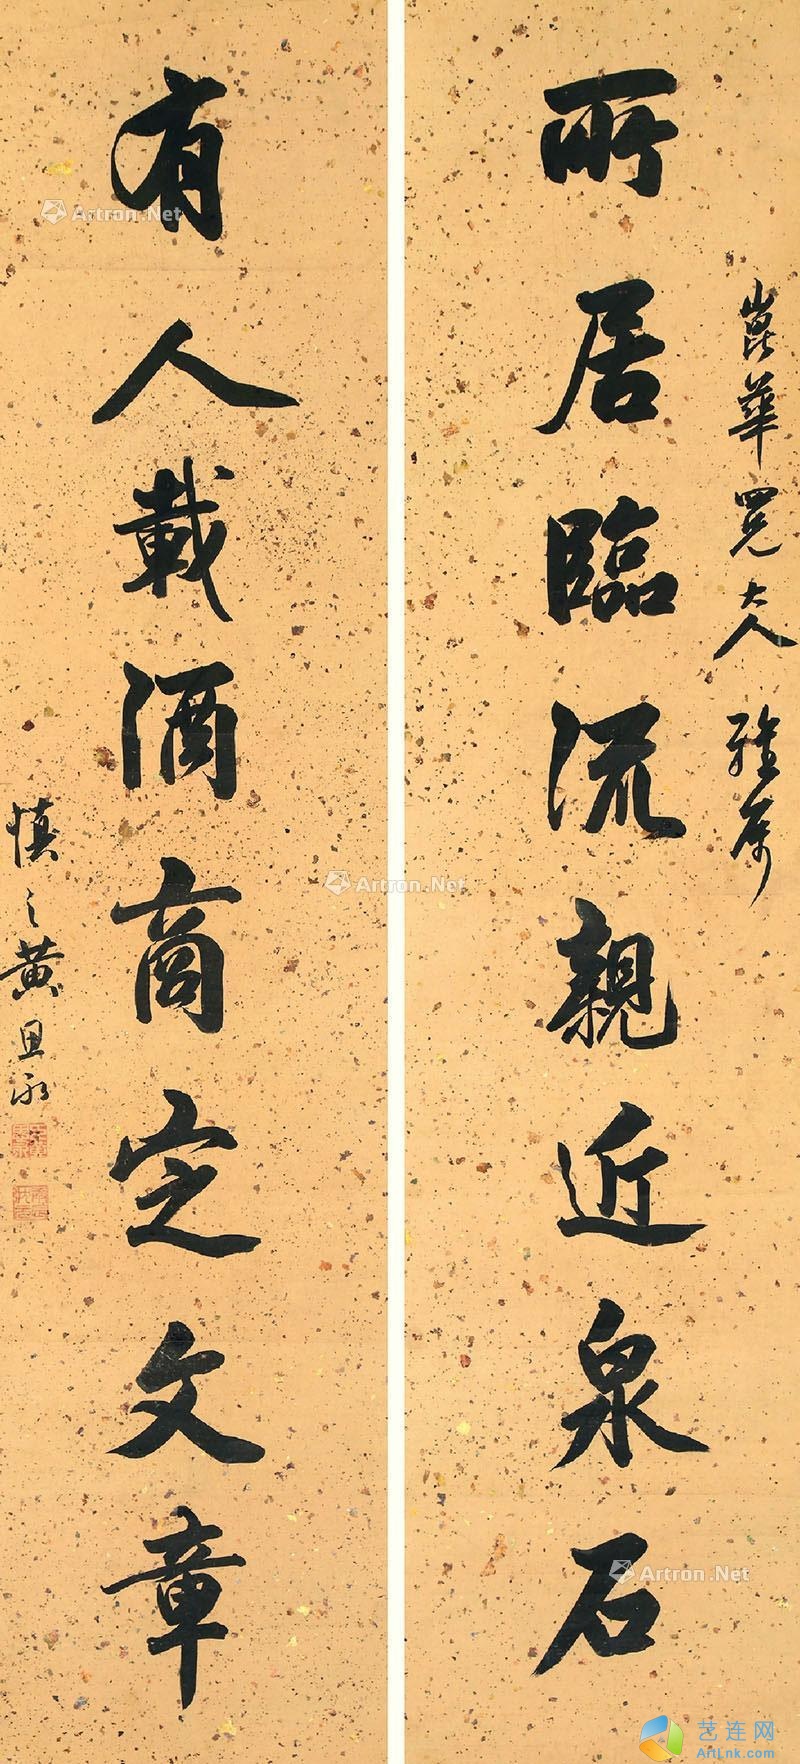 崑華四兄大人雅屬
所居臨流親近泉石
有人載酒商定文章
慎之黃思永
Artron.Net
Artron.Net
Artron.Net
Artron.Net
艺连网
ArtLink.Com